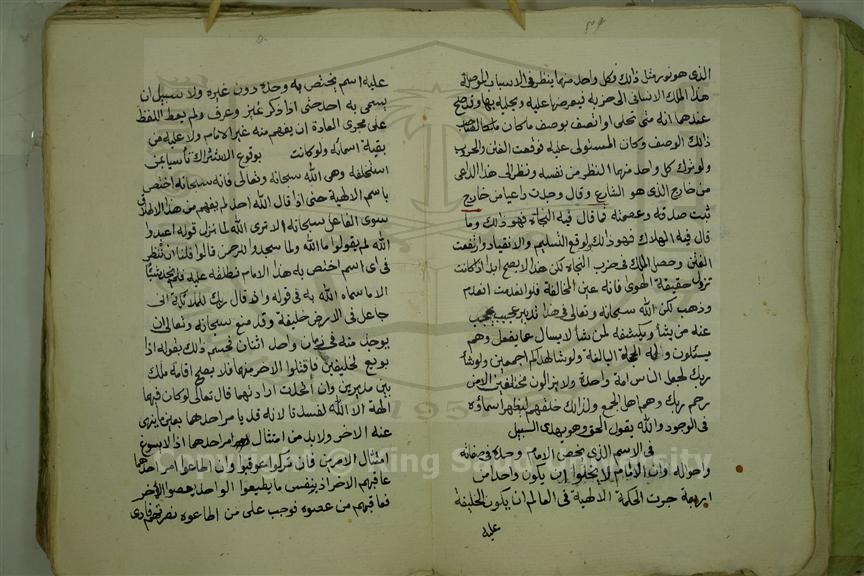 الذى هو نور مثل ذالك فكل واحد منهما ينظر فى الاسباب الموصلة
هذا الملك الانسانى الى حزبه فيعرضها عليه ويحليه بها وقد صح
عندهما انه متى تحلى او اتصف بوصف ما كان ملكا لصاحب
ذالك الوصف وكان المستولى عليه فوقعت الفتن والحروب
ولو ترك كل واحد منهما النظر من نفسه ونظر الى هذا الداعى
من خارج الذى هو الشارع وقال وجدت داعيا من خارج
ثبت صدقه وعصمته فما قال فيه النجاة فهو ذالك وما
قال فيه الهلاك فهو ذالك لوقع التسليم والانقياد وارتفعت
الفتن وحصل الملك فى حزب النجاة لكن هذا لا يصح ابدا اذ كانت
تزول حقيقة الهوى فانه عين المخالفة فلو انعدمت انعدم
وذهب لكن الله سبحانه وتعالى فى هذا تدبير عجيب يحجب
عنه من يشأ ويكشفه لمن يشأ لا يسأل عما يفعل وهم
يسئلون وله الحجة البالغة ولو شا لهداكم اجمعين ولو شأ
ربك لجعل الناس امة واحدة ولا يزالون مختلفين الا من
رحم ربك وهم اهل الجمع ولذالك خلقهم ليظهر اسماؤه
فى الوجود والله يقول الحق وهو يهدى السبيل
فى الاسم الذى يخص الامام وحده فى صفاته
واحواله وان الامام لا يخلوا ان يكون واحد من
اربعة جرت الحكمة الالهية فى العالم ان يكون الخليفة
عليه
عليه اسم يختص به وحده دون غيره ولا سبيل ان
يسمى به احد حتى اذا ذكر مُيز وعرف ولم يعط اللفظ
على مجرى العادة ان يفهم منه غير الامام ولا عليه من
بقية اسمائه ولو كانت بوقوع الاشتراك تأسيا بمن
استخلفه وهى الله سبحانه وتعالى فانه سبحانه اختص
باسم الالهية حتى اذا قال الله احد لم يفهم من هذا الاطلاق
سوى الفاعل سبحانه الا ترى الله لما نزل قوله اعبدوا
الله لم يقولوا ما الله ولما سجدوا للرحمن قالوا فلنا ان ننظر
فى اى اسم اختص به هذا الامام نطلقه عليه فلم نجد شيئا
الا ما سماه الله به فى قوله واذ قال ربك للملائكة انى
جاعل فى الارض خليفة وقد منع سبحانه وتعالى ان
يوجد منه فى زمان واحد اثنان فحسم ذالك بقوله اذا
بويع لخليفتين فاقتلوا الاخر منهما فلا يصح اقامة ملك
بين مدبرين وان اتحدت ارادتهما قال تعالى لو كان فيهما
الهة الا الله لفسدتا لانه قد يامر احدهما بمعين ينهى
عنه الاخر ولا بد من امتثال امر احدهما اذ لا يسوغ
امتثال الامرين فان تركوا عوقبوا وان اطاعوا امر احدهما
عاقبهم الاخر اذ بنفس ما يطيعوا الواحد يعصوا الاخر
فعاقبهم من عصوه فوجب على من اطاعوه نصرتهم فادى
Copyright © King Saud University
1957